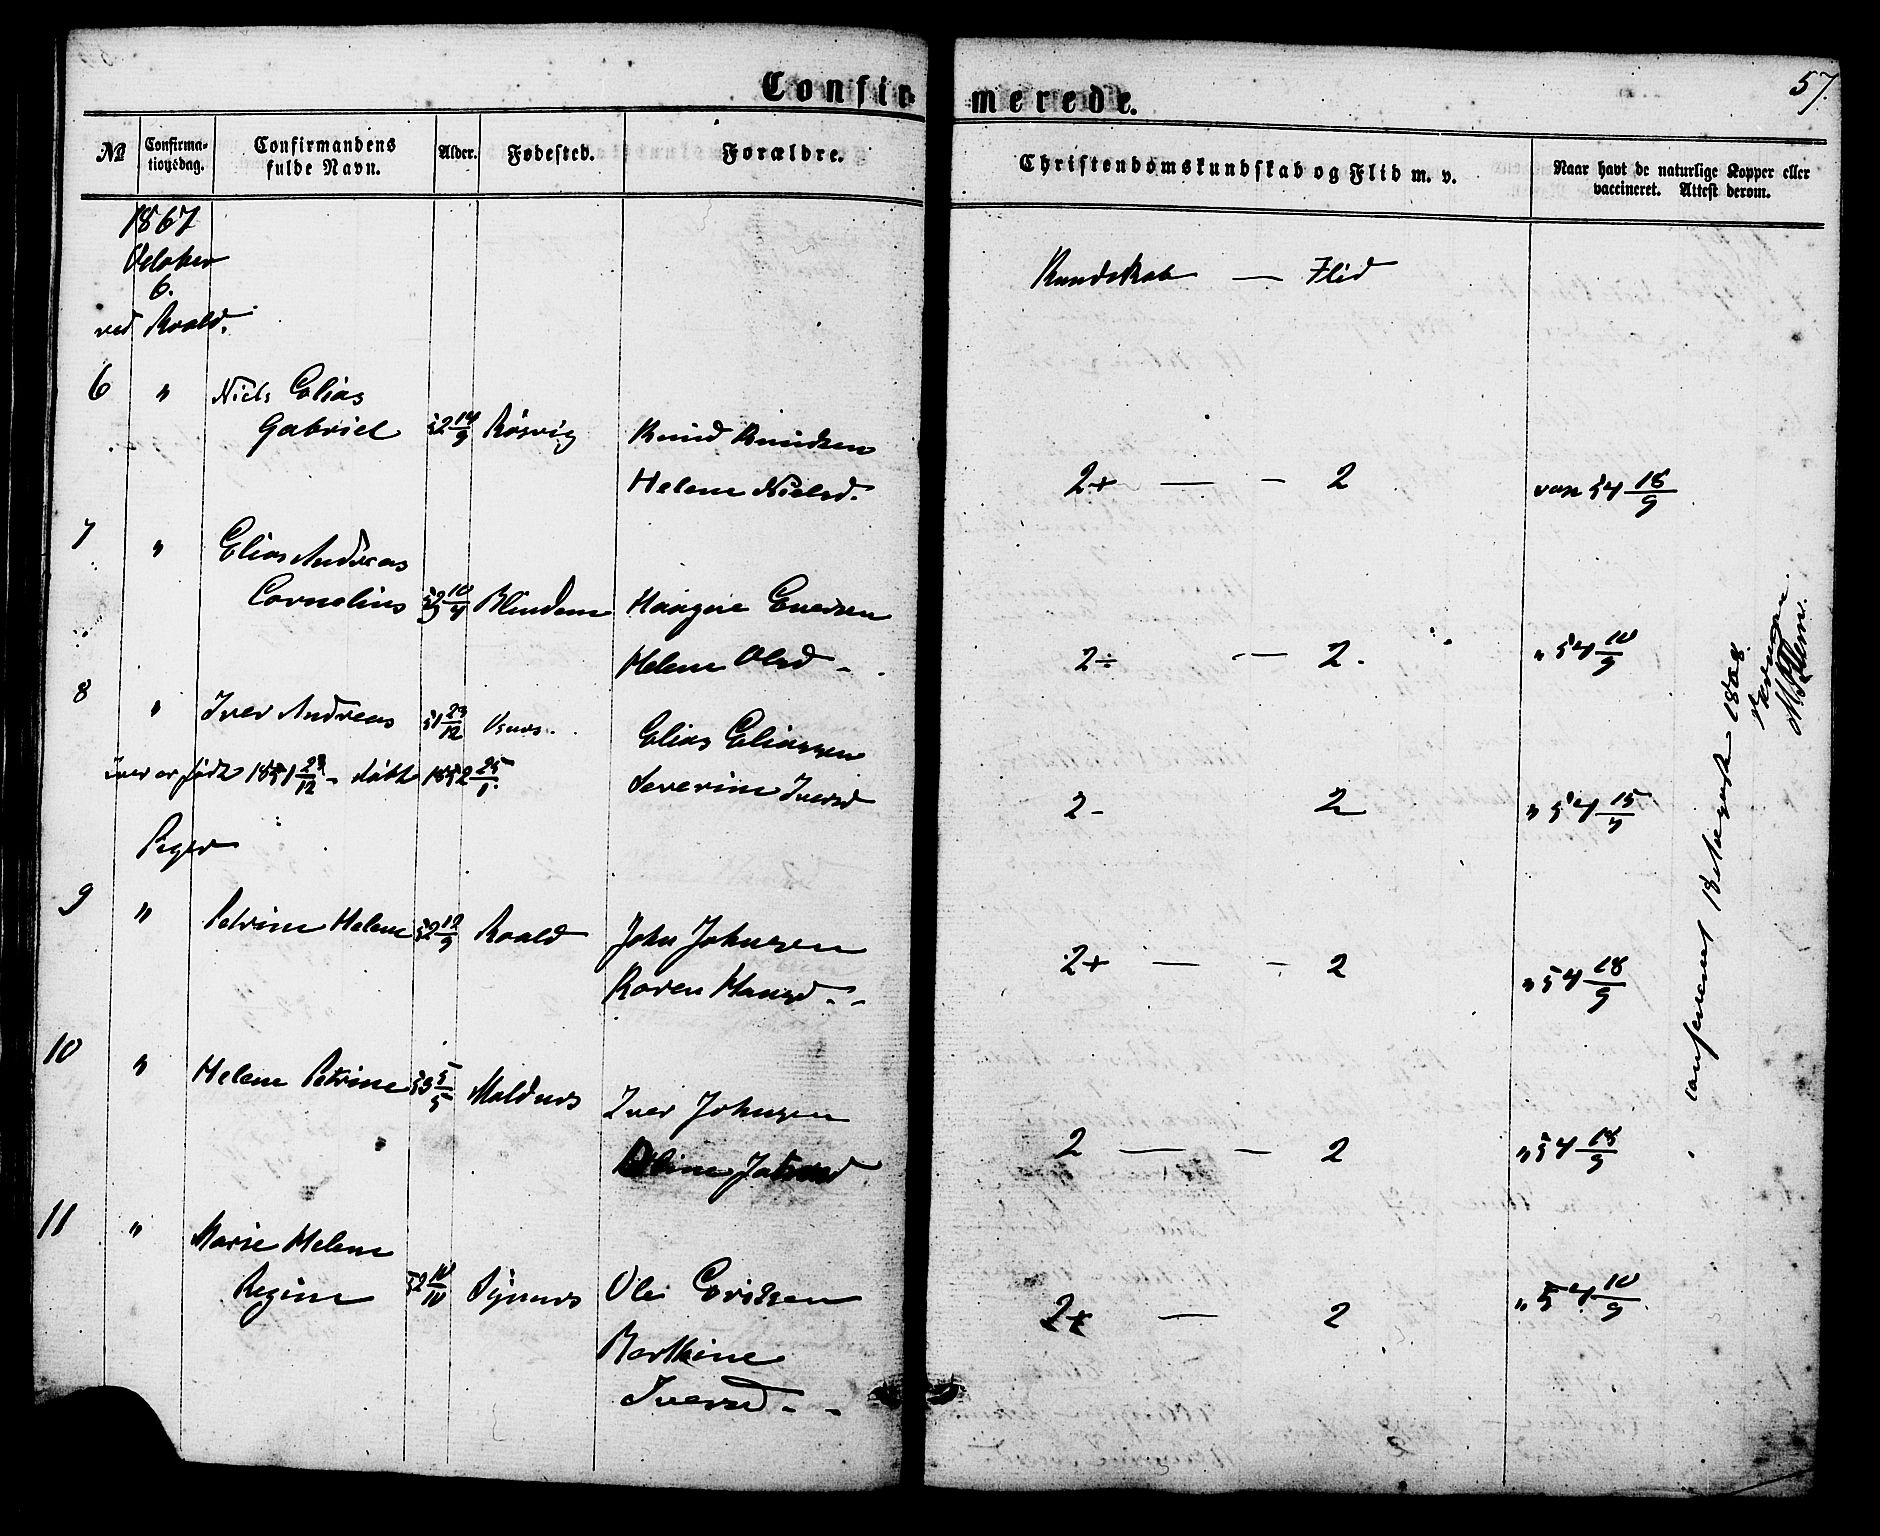 57.
Confir-
merede.
№
Confirma-
tionsdag.
Confirmandens
fulde Navn.
Alder.
Fødested.
Forældre.
Christendomskundskab og Flid m. v.
Naar havt de naturlige Kopper eller
vaccineret. Attest derom.
1867
October
6.
ved Roald.
Kundskab — Flid
6 " Niels Elias
Gabriel 52 14/9 Røsvig Knud Knudsen
Helene Nielsd. 2+ — - 2 vac 54 18/9
7 " Elias Andreas
Cornelius 52 10/4 Blindem
Helene Olsd - 2÷ - — 2. " 54 10/9
8 " Iver Andreas 51 23/12 Elias Eliassen
Iver er født 1851 23/12 - døbt 1852 25/1.
Severine Iversd 2- 2 " 54 15/9
Piger
9 " Petrine Helene 52 12/9 Roald John Johnsen
Karen Hansd. - 2+ — - 2 " 54 18/9
10 " Helene Petrine 53 5/5 Moldnes Iver Johnsen
Oline 2 — - 2 " 54 18/9
11 " Marie Helene
Regine 52 10/10 Synnes Ole
Barthine
Iversd - - 2+ — 2 " 54 10/9
confereret 18 August 1868